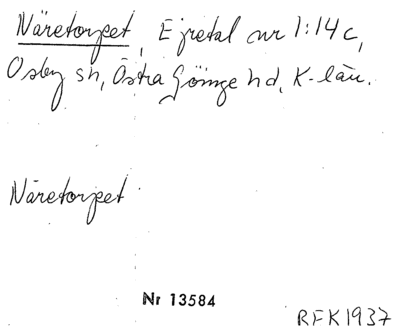 Näretorpet, Ejretal nr 1:14c,
Osby sn, Östra Göinge hd, K-län.
Näretorpet
Nr 13584
RFK 1937